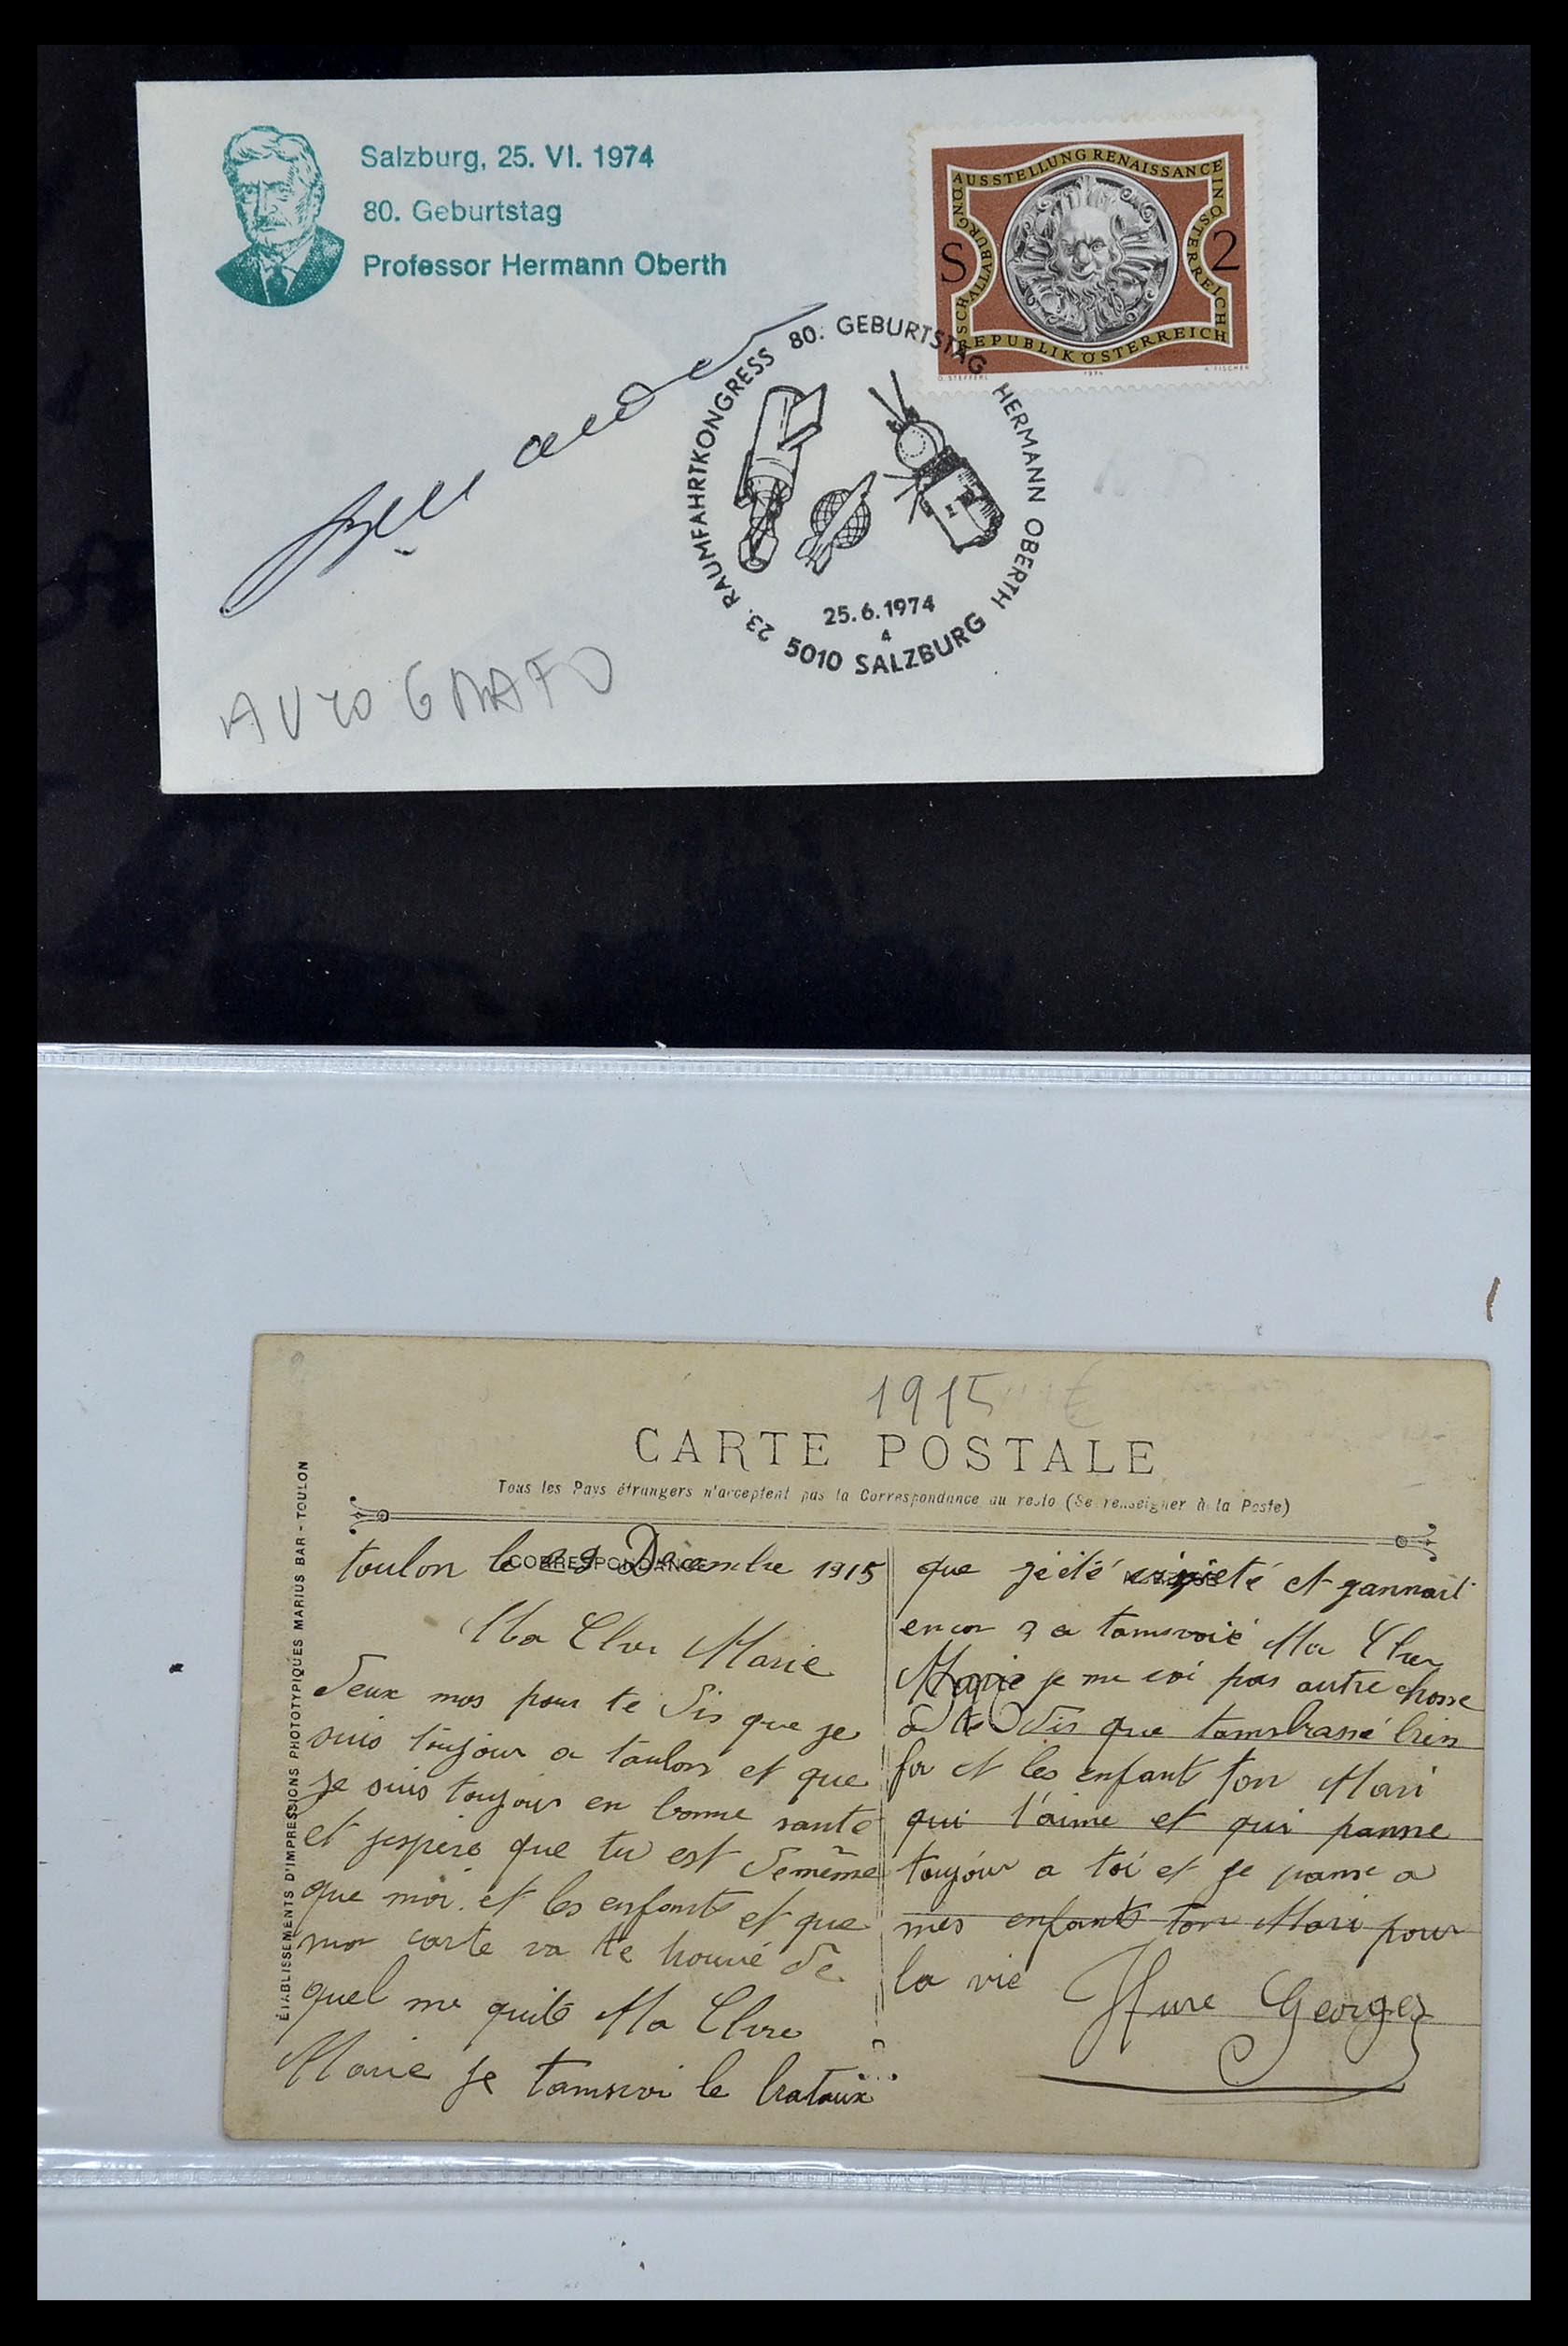 Salzburg, 25. VI. 1974
80. Geburtstag
Professor Hermann Oberth
AUSSTELLUNG RENAISSANCE IN ÖSTERREICH
SCHALLABURG NÖ
S 2
REPUBLIK ÖSTERREICH
O. STEFFERL 1974 A. FISCHER
23. RAUMFAHRTKONGRESS 80. GEBURTSTAG HERMANN OBERTH
25.6.1974
4
5010 SALZBURG
AUTOGRAFO
1915
CARTE POSTALE
Tous les Pays étrangers n'acceptent pas la Correspondance au recto (Se renseigner à la Poste)
CORRESPONDANCE
ÉTABLISSEMENTS D'IMPRESSIONS PHOTOTYPIQUES MARIUS BAR - TOULON
toulon le Décembre 1915
Ma Cher Marie
Deux mos pour te dis que je
suis toujour a toulon et que
je suis toujour en bonne santé
et jespere que tu est demême
que moi et les enfants et que
mor carte va te trouvé de
quel me quite Ma Chere
Marie je
que jété et
encor Ma Cher
Marie je me pas autre chosse
a te dis que
et les enfant ton Mari
qui t'aime et qui panse
toujour a toi et je panse a
mes enfants ton Mari pour
la vie Georges